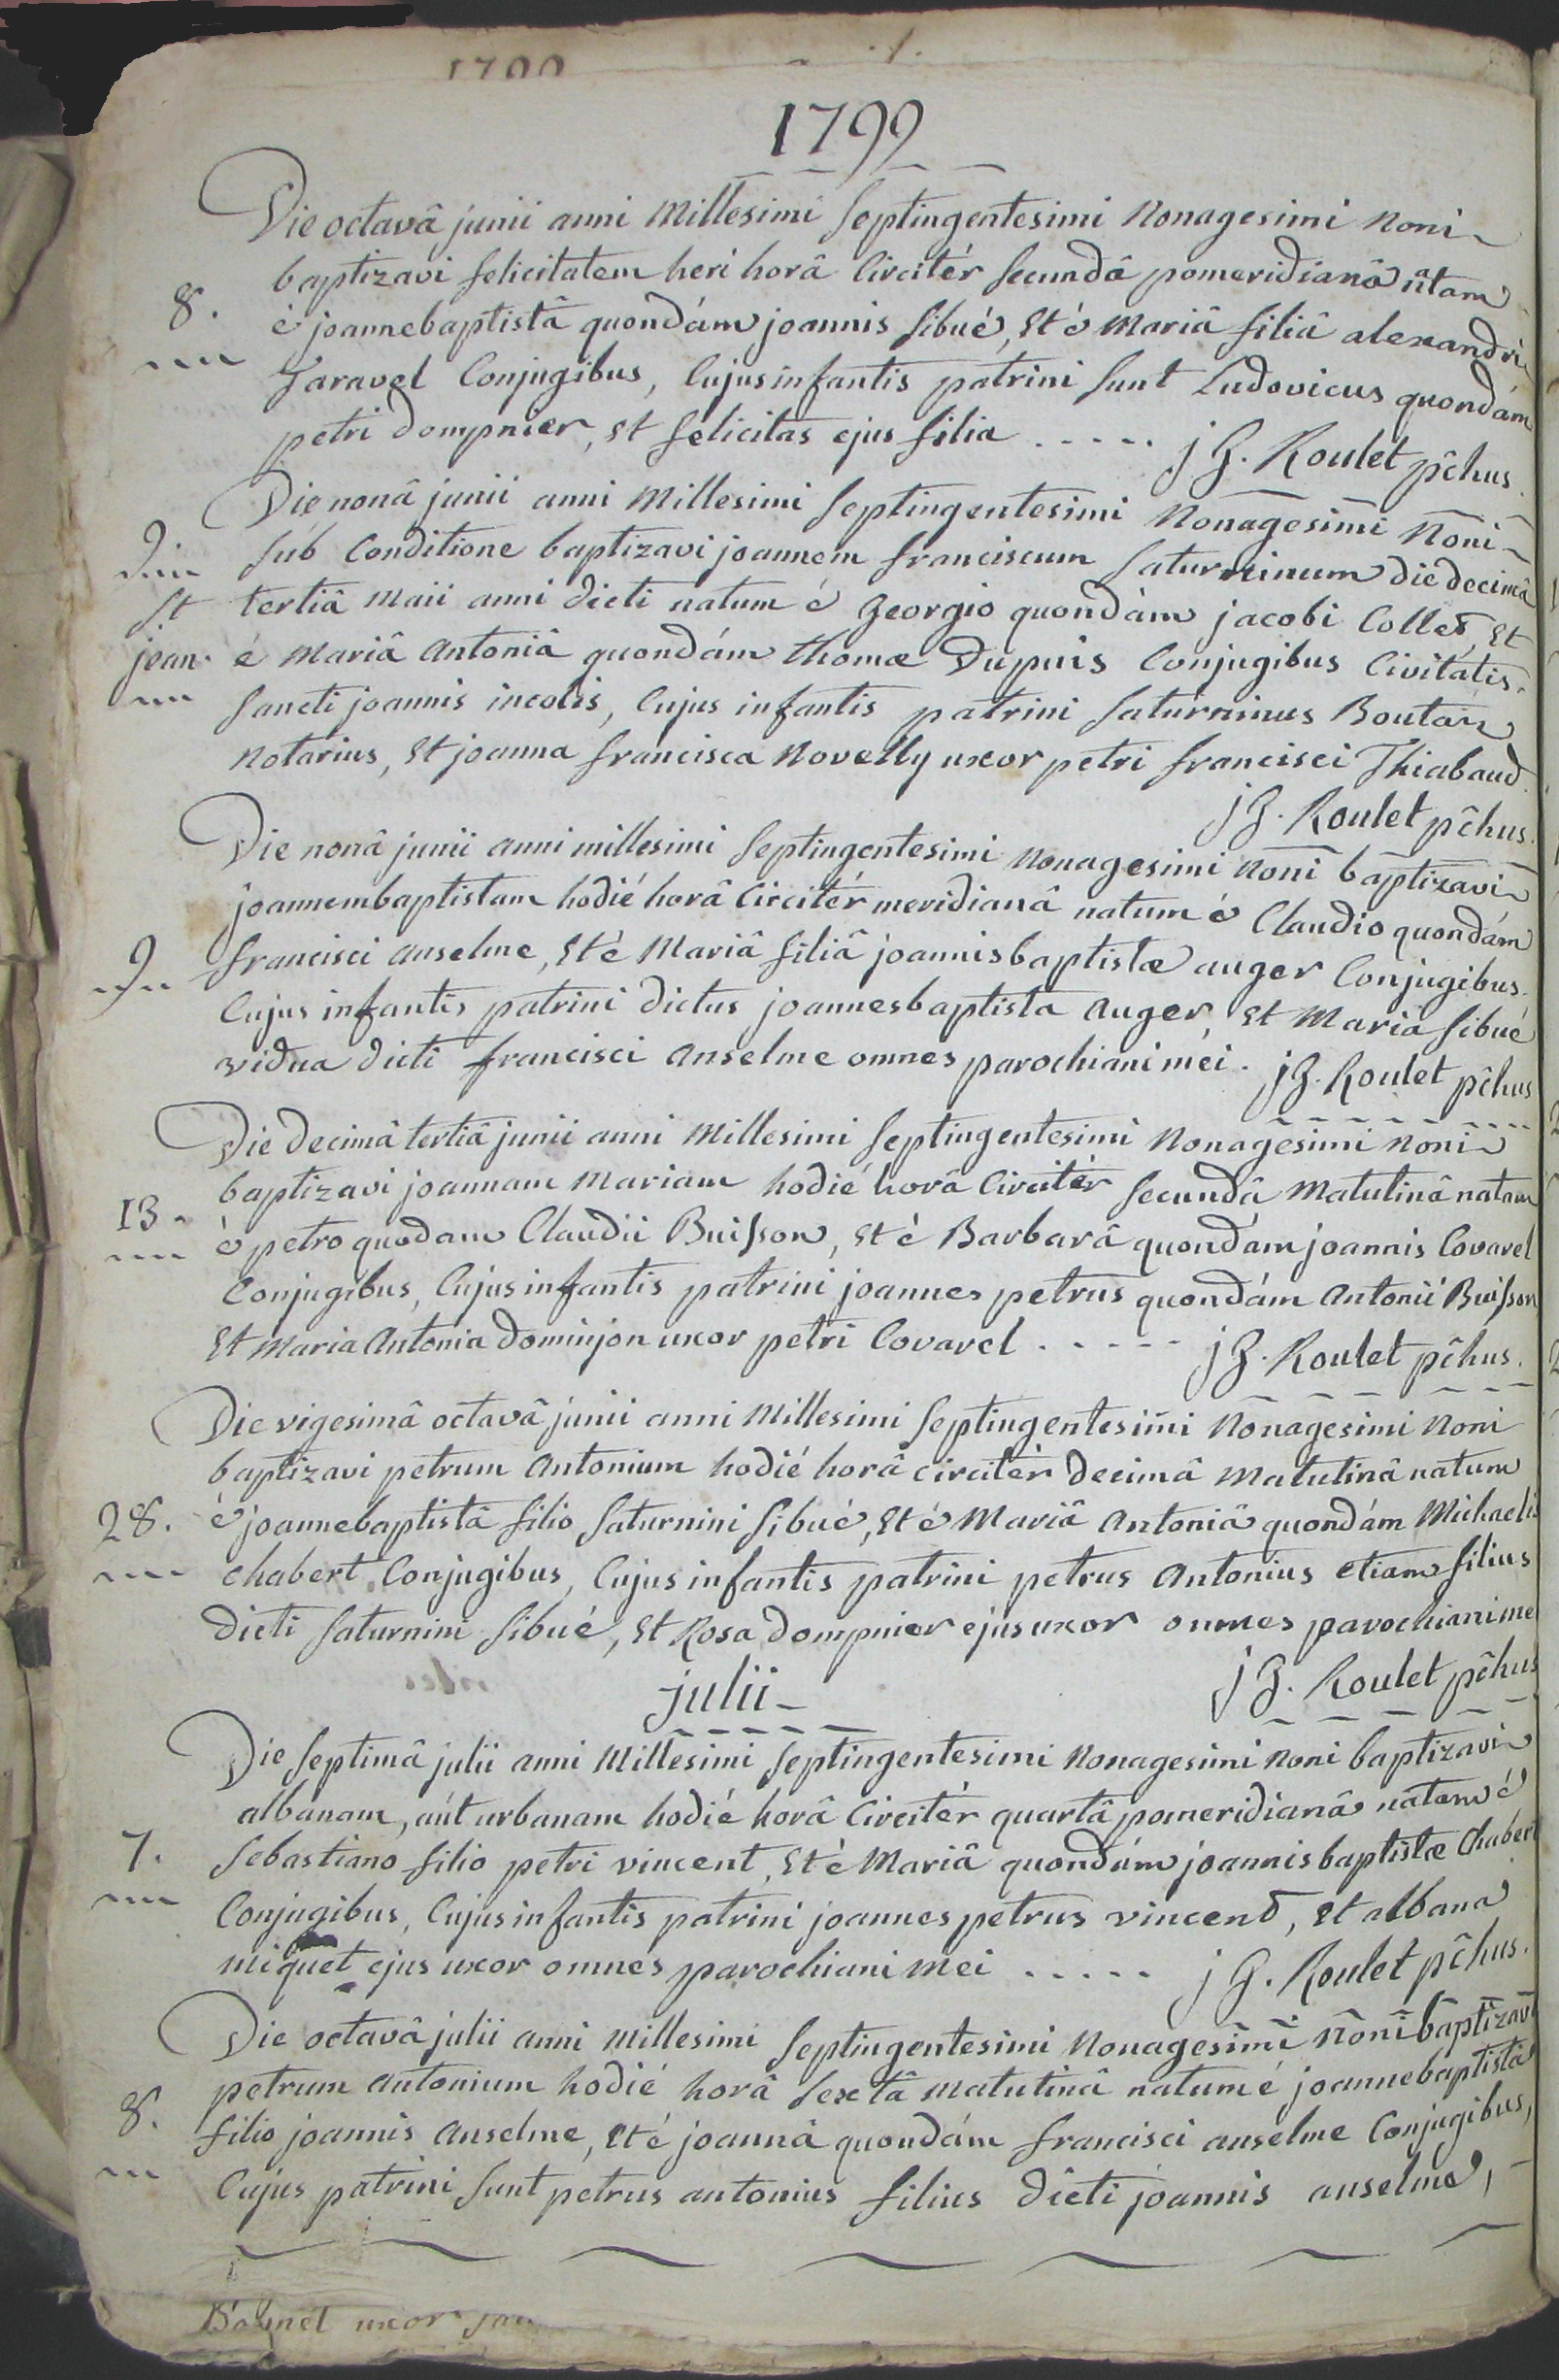 1799
Die octavâ junii anni Millesimi Septingentesimi Nonagesimi Noni
baptizavi felicitatem heri horâ Circitér Secundâ pomeridianâ ñtam
8. é joannebaptistâ quondám joannis Sibué, Et é Mariâ filiâ alexandri
Taravel Conjugibus, Cujus infantis patrini Sunt Ludovicus quondám
petri Dompnier, et felicitas ejus filia ..... j G. Roulet pĉhus
Die nonâ junii anni Millesimi Septingentesimi Nonagesimi Noni
9. Sub Conditione baptizavi joannem franciscum Saturninum die decimâ
St tertiâ Maii anni dicti natum é Georgio quondàm jacobi Collet, Et
jean é Mariâ Antoniâ quondám thomæ Dupuis Conjugibus Civitatis
Sancti joannis incolis, Cujus infantis patrini Saturninus Boutan
Notarius, Et joanna francisca Novelly uxor petri francisci Thiabaud
j G. Roulet pĉhus.
Die nonâ junii anni millesimi Septingentesimi Nonagesimi Noni baptizavi
joannembaptistam hodié horâ Circitér meridianâ natum é Claudio quondám
9. francisci Anselme, Et é Mariâ filiâ joannisbaptistæ auger Conjugibus.
Cujus infantis patrini dictus joannesbaptista Auger, Et Maria Sibué
vidua dicti francisci Anselme omnes parochiani mei. j G. Roulet pĉhus
Die decimâ tertiâ junii anni Millesimi Septingentesimi Nonagesimi Noni
baptizavi joannam Mariam hodié horâ Circitér Secundâ Matutinâ natam
13. é petro quodam Claudii Buisson, Et é Barbarâ quondám joannis Covarel
Conjugibus, Cujus infantis patrini joannes petrus quondám Antonii Buisson
Et Maria Antonia Dominjon uxor petri Covarel ..... j G. Roulet pĉhus.
Die vigesimâ octavâ junii anni Millesimi Septingentesimi Nonagesimi Noni
baptizavi petrum Antonium hodié horâ circitér decimâ Matutinâ natum
28. é joannebaptistâ filio Saturnini Sibué, Et é Mariâ Antoniâ quondám Michaelis
Chabert Conjugibus, Cujus infantis patrini petrus Antonius etiam filius
dicti Saturnini Sibué, Et Rosa Dompnier ejus uxor omnes parochiani mei
j G. Roulet pĉhus
julii
Die Septimâ julii anni Millesimi Septingentesimi Nonagesimi Noni baptizavi
albanam, aút urbanam hodié horâ Circitér quartâ pomeridianâ natam é
7. Sebastiano filio petri vincent, Et é Mariâ quondám joannisbaptistæ Chabert
Conjugibus, Cujus infantis patrini joannes petrus vincend, Et albana
miquet ejus uxor omnes parochiani mei ..... j G. Roulet pĉhus.
Die octavâ julii anni Millesimi Septingentesimi Nonagesimi Noni baptizavi
petrum antonium hodié horâ Sextâ Matutinâ natum é joannebaptistâ
8. filio joannis Anselme, Et é joannâ quondám francisci anselme Conjugibus,
Cujus patrini Sunt petrus antonius filius dicti joannis anselme,
uxor